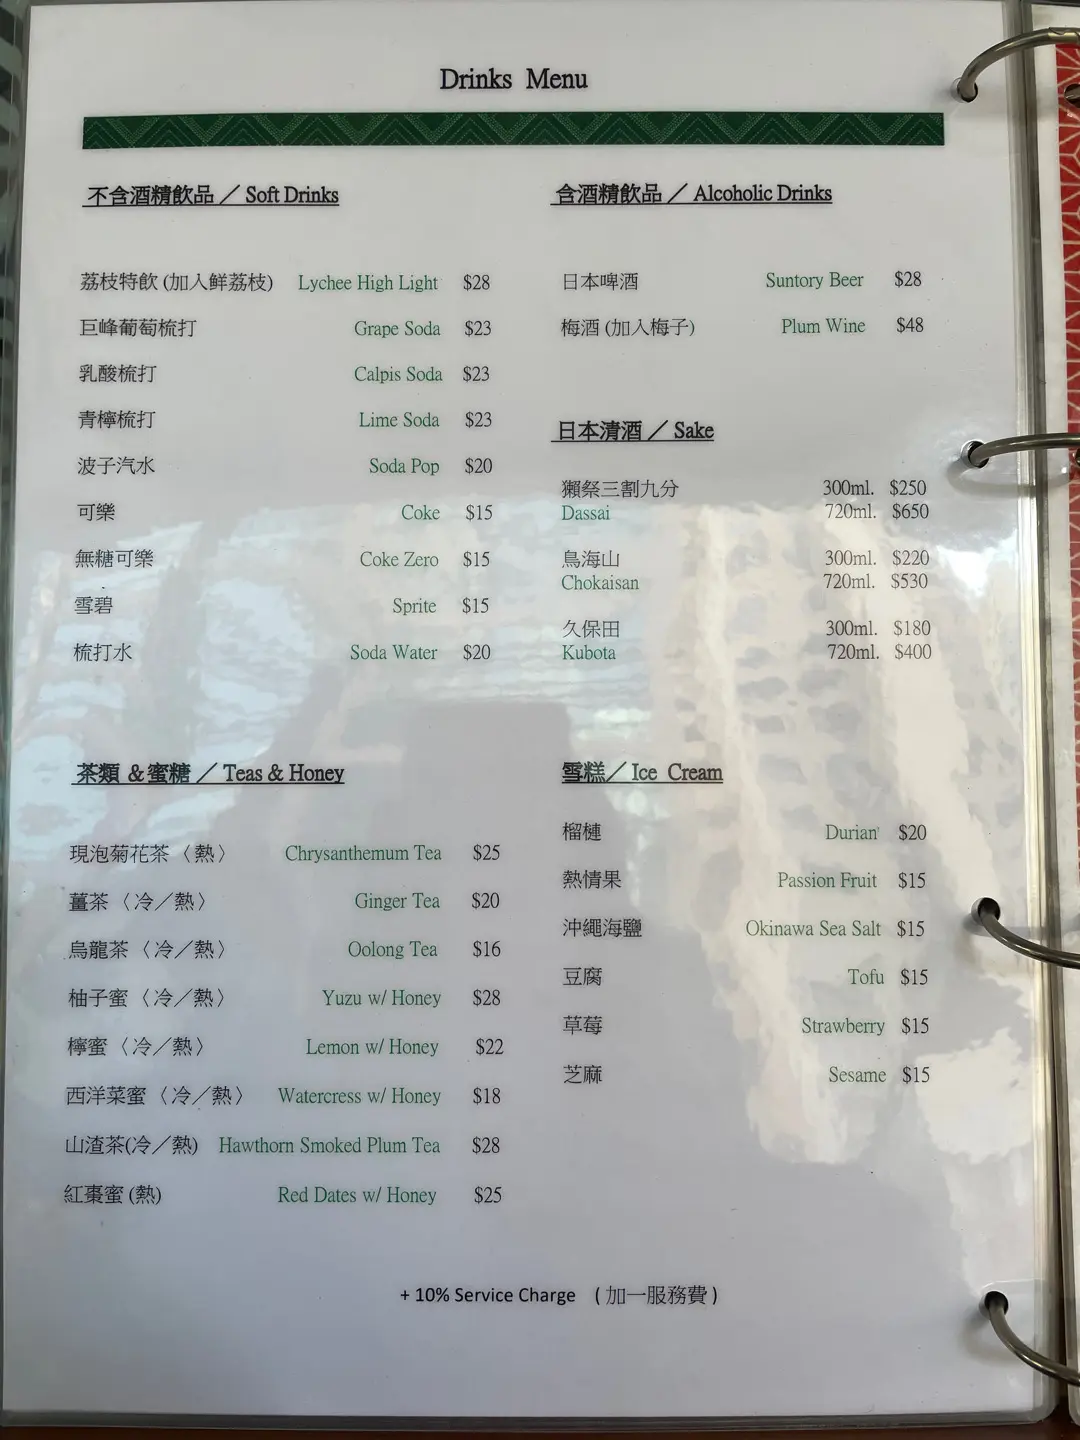 Drinks Menu
不含酒精飲品 ／ Soft Drinks
荔枝特飲 (加入鮮荔枝) Lychee High Light $28
巨峰葡萄梳打 Grape Soda $23
乳酸梳打 Calpis Soda $23
青檸梳打 Lime Soda $23
波子汽水 Soda Pop $20
可樂 Coke $15
無糖可樂 Coke Zero $15
雪碧 Sprite $15
梳打水 Soda Water $20
含酒精飲品 ／ Alcoholic Drinks
日本啤酒 Suntory Beer $28
梅酒 (加入梅子) Plum Wine $48
日本清酒 ／ Sake
獺祭三割九分 300ml. $250
Dassai 720ml. $650
鳥海山 300ml. $220
Chokaisan 720ml. $530
久保田 300ml. $180
Kubota 720ml. $400
茶類 ＆蜜糖 ／ Teas & Honey
現泡菊花茶〈熱〉 Chrysanthemum Tea $25
薑茶〈冷／熱〉 Ginger Tea $20
烏龍茶〈冷／熱〉 Oolong Tea $16
柚子蜜〈冷／熱〉 Yuzu w/ Honey $28
檸蜜〈冷／熱〉 Lemon w/ Honey $22
西洋菜蜜〈冷／熱〉 Watercress w/ Honey $18
山渣茶(冷／熱) Hawthorn Smoked Plum Tea $28
紅棗蜜 (熱) Red Dates w/ Honey $25
雪糕／ Ice Cream
榴槤 Durian $20
熱情果 Passion Fruit $15
沖繩海鹽 Okinawa Sea Salt $15
豆腐 Tofu $15
草莓 Strawberry $15
芝麻 Sesame $15
+ 10% Service Charge ( 加一服務費 )